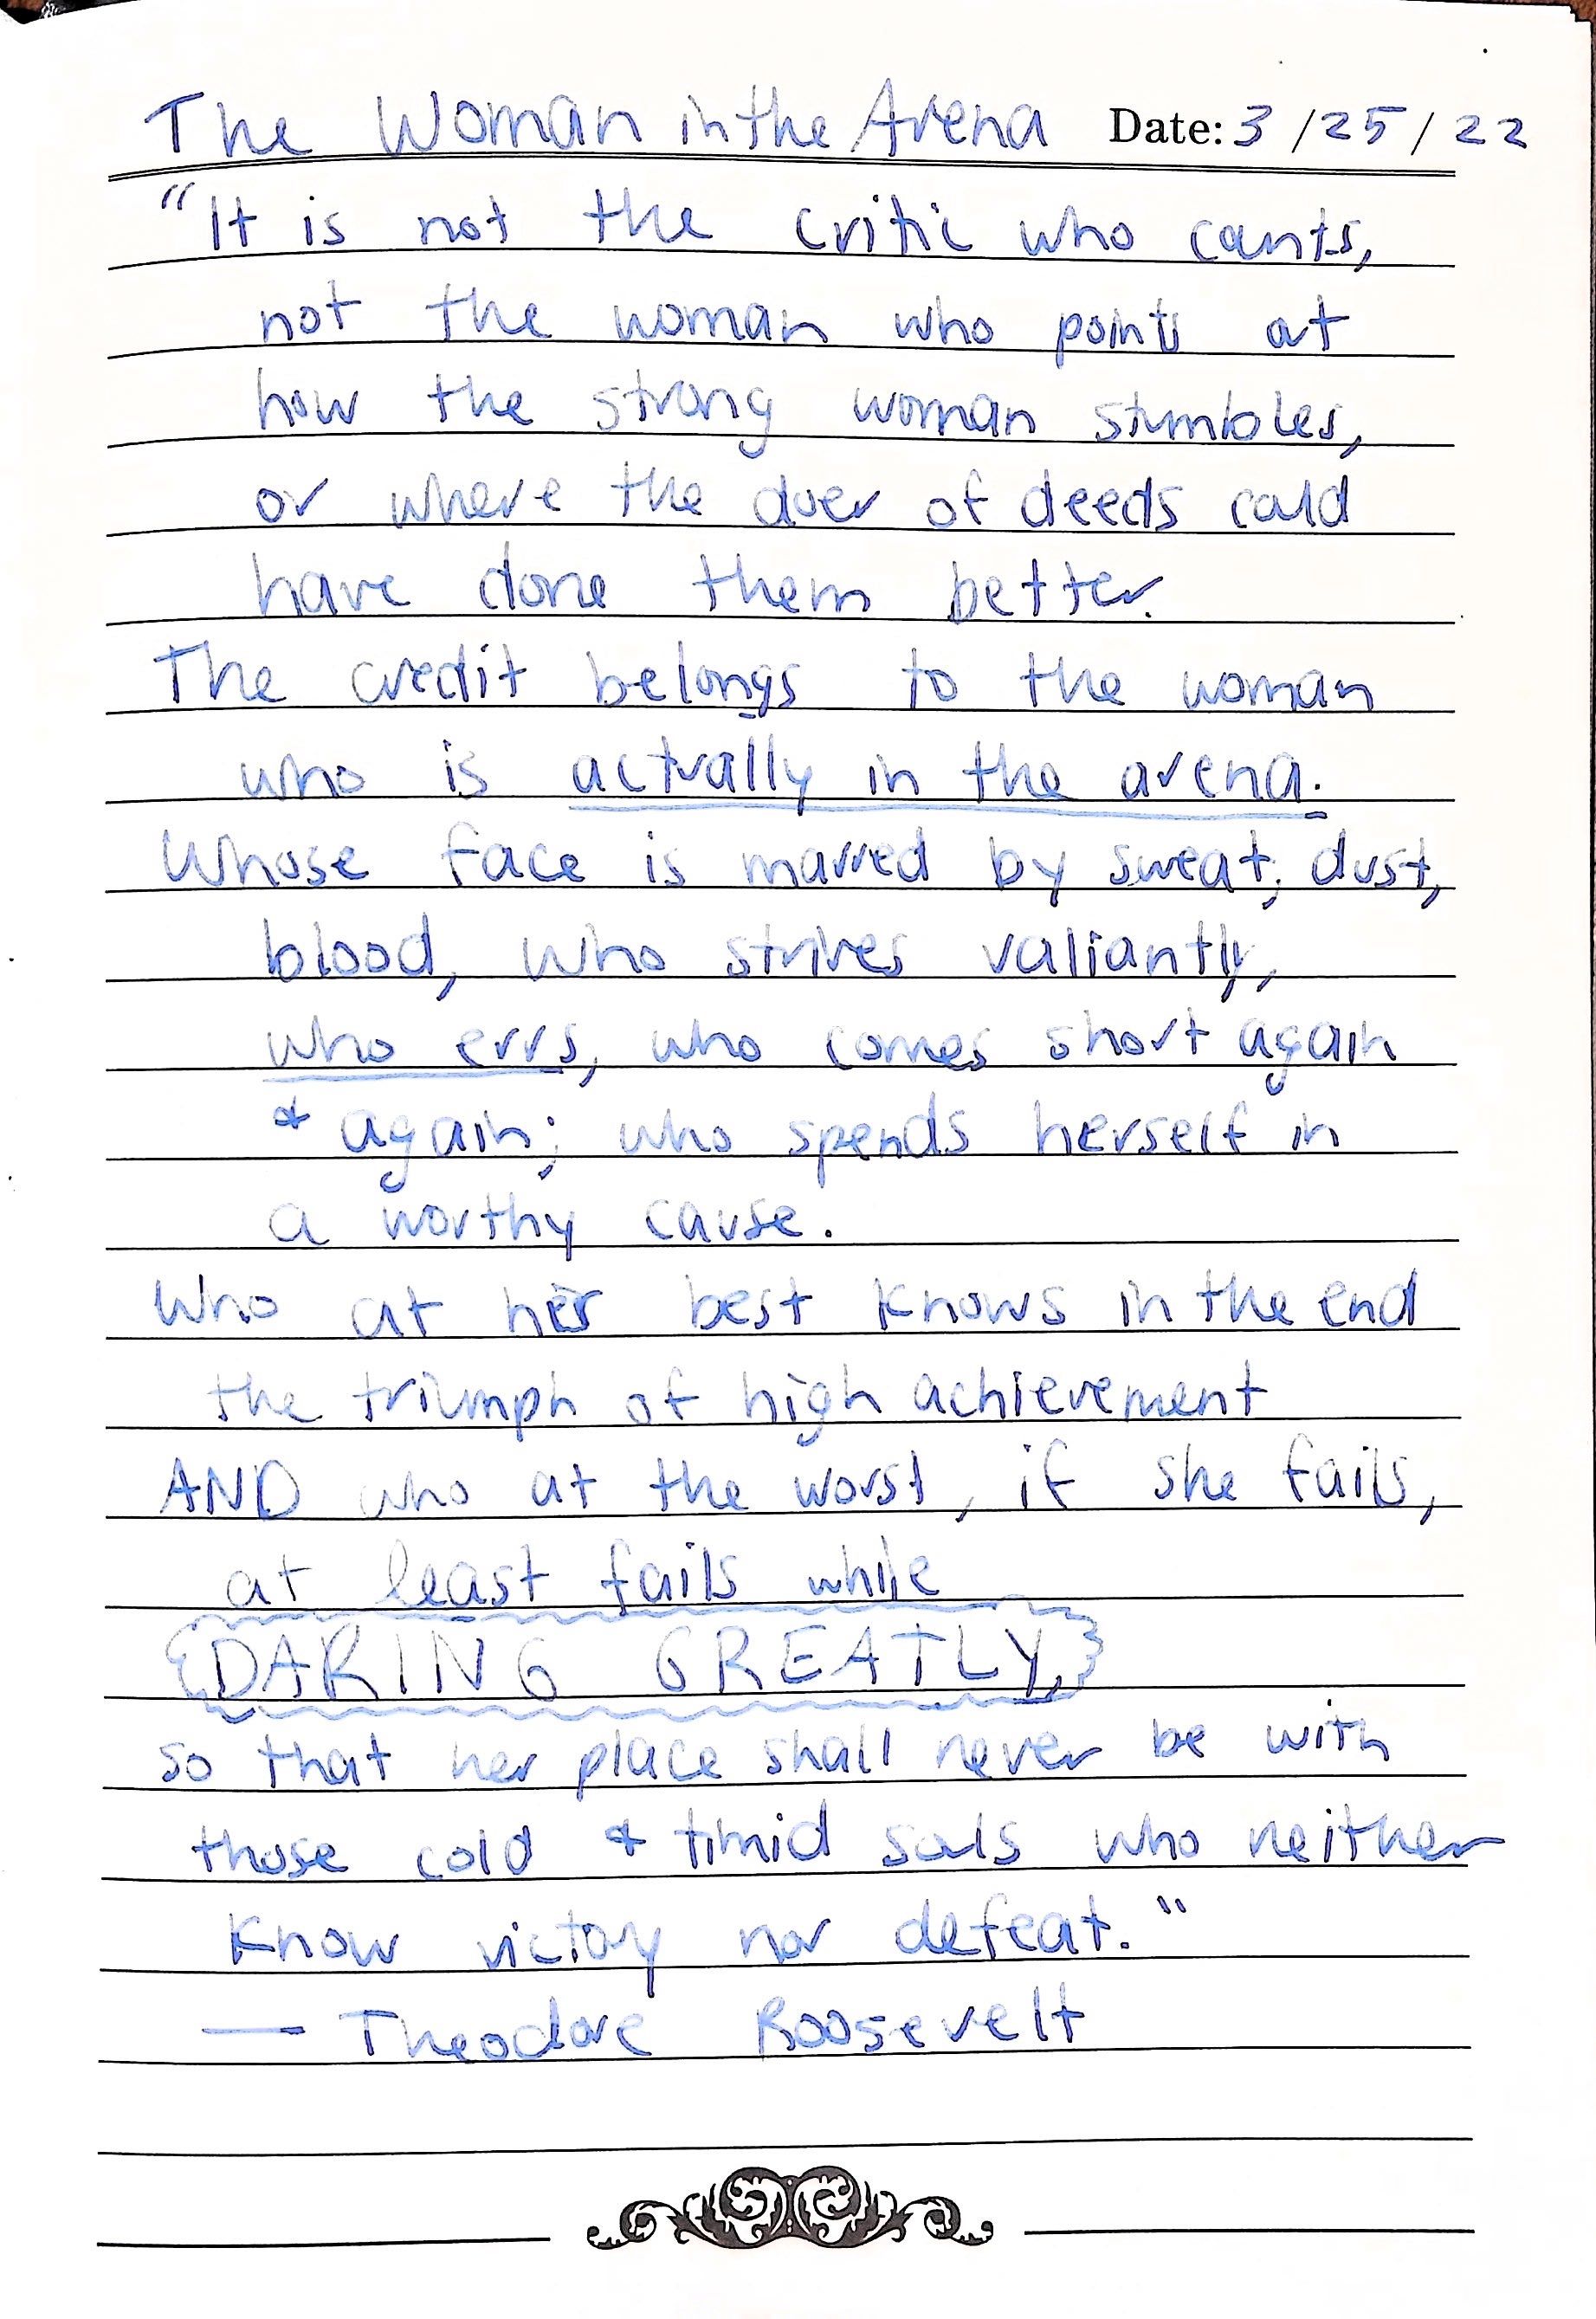 The Woman in the Arena Date: 3/25/22
"It is not the critic who counts,
not the woman who points at
how the strong woman stumbles,
or where the doer of deeds could
have done them better.
The credit belongs to the woman
who is actually in the arena.
Whose face is marred by sweat, dust,
blood, who strives valiantly,
who errs, who comes short again
& again; who spends herself in
a worthy cause.
Who at her best knows in the end
the triumph of high achievement
AND who at the worst, if she fails,
at least fails while
{DARING GREATLY,}
so that her place shall never be with
those cold & timid souls who neither
know victory nor defeat."
— Theodore Roosevelt